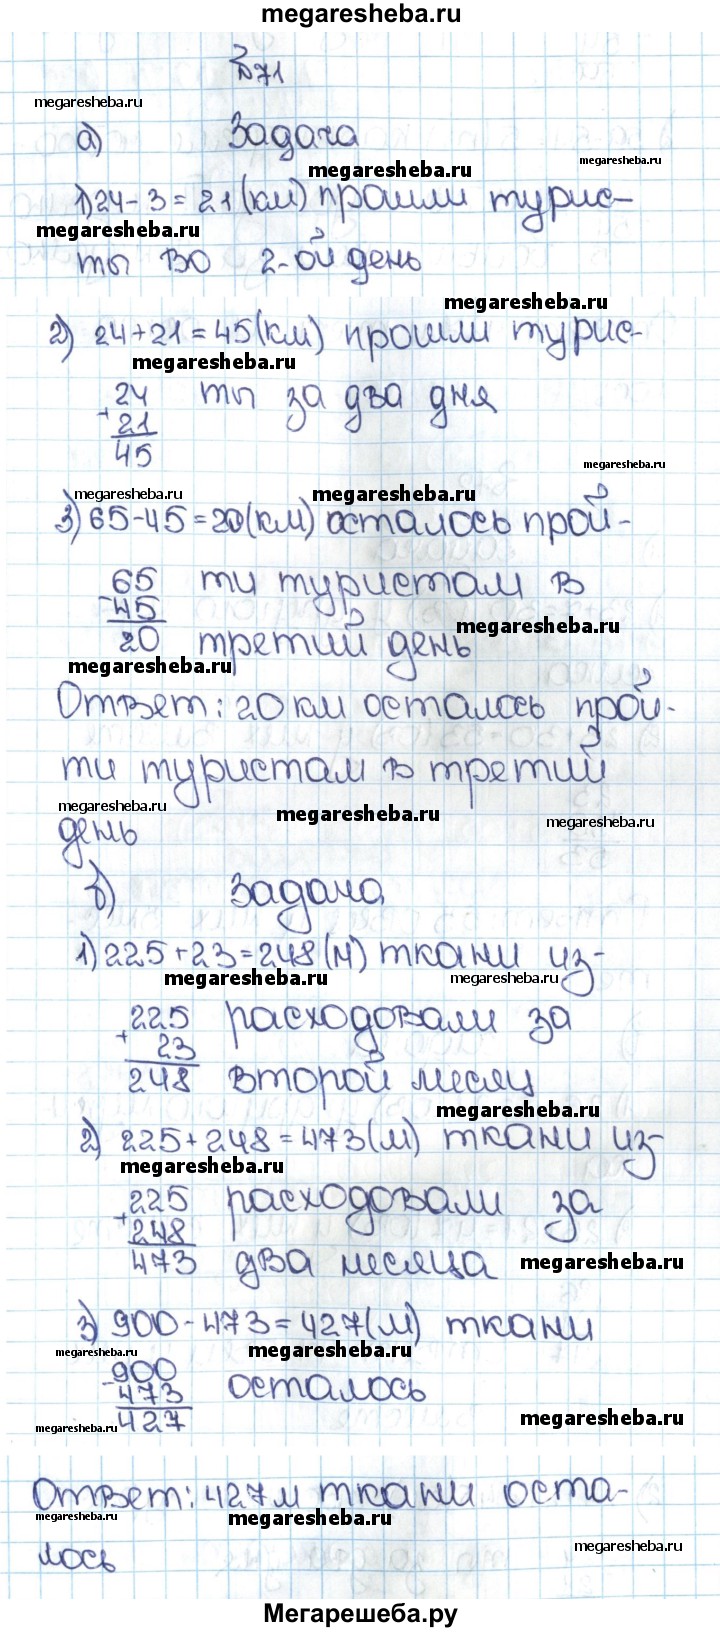 megaresheba.ru
№71
megaresheba.ru
а) Задача
megaresheba.ru
megaresheba.ru
1) 24-3=21(км) прошли турис-
megaresheba.ru
ты во 2-ой день
megaresheba.ru
2) 24+21=45(км) прошли турис-
megaresheba.ru
24 ты за два дня
+21
45
megaresheba.ru
megaresheba.ru
megaresheba.ru
3) 65-45=20(км) осталось прой-
65 ти туристам в
-45
megaresheba.ru
20 третий день
megaresheba.ru
Ответ: 20 км осталось прой-
ти туристам в третий
megaresheba.ru
megaresheba.ru
megaresheba.ru
день
б) Задача
1) 225+23=248(м) ткани из-
megaresheba.ru
megaresheba.ru
225 расходовали за
+ 23
248 второй месяц
megaresheba.ru
2) 225+248=473(м) ткани из-
megaresheba.ru
225 расходовали за
+248
473 два месяца
megaresheba.ru
3) 900-473=427(м) ткани
megaresheba.ru
megaresheba.ru
900 осталось
-473
427
megaresheba.ru
megaresheba.ru
Ответ: 427м ткани оста-
megaresheba.ru
megaresheba.ru
лось
megaresheba.ru
Мегарешеба.ру